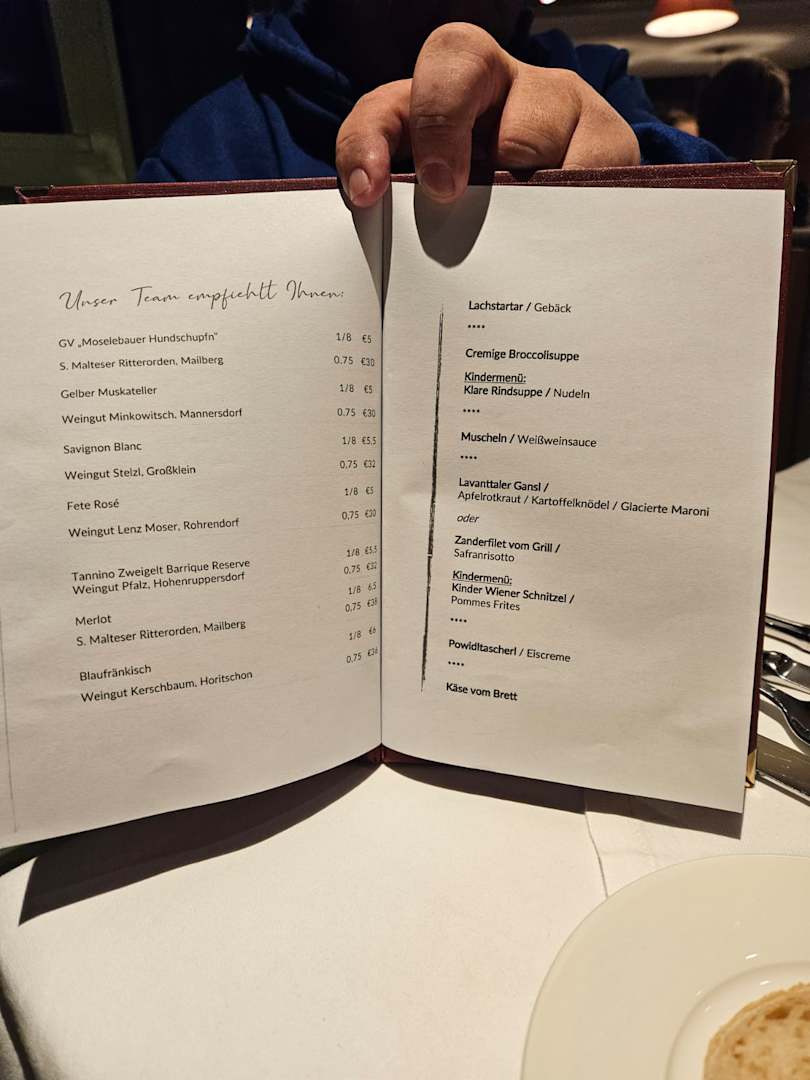 Unser Team empfiehlt Ihnen:
GV „Moselebauer Hundschupfn" 1/8 €5
S. Malteser Ritterorden, Mailberg 0.75 €30
Gelber Muskateller 1/8 €5
Weingut Minkowitsch, Mannersdorf 0.75 €30
Savignon Blanc 1/8 €5.5
Weingut Stelzl, Großklein 0,75 €32
Fete Rosé 1/8 €5
Weingut Lenz Moser, Rohrendorf 0,75 €30
Tannino Zweigelt Barrique Reserve 1/8 €5.5
Weingut Pfalz, Hohenruppersdorf 0,75 €32
Merlot 1/8 6,5
S. Malteser Ritterorden, Mailberg 0,75 €38
Blaufränkisch 1/8 €6
Weingut Kerschbaum, Horitschon 0,75 €36
Lachstartar / Gebäck
****
Cremige Broccolisuppe
Kindermenü:
Klare Rindsuppe / Nudeln
****
Muscheln / Weißweinsauce
****
Lavanttaler Gansl /
Apfelrotkraut / Kartoffelknödel / Glacierte Maroni
oder
Zanderfilet vom Grill /
Safranrisotto
Kindermenü:
Kinder Wiener Schnitzel /
Pommes Frites
****
Powidltascherl / Eiscreme
****
Käse vom Brett